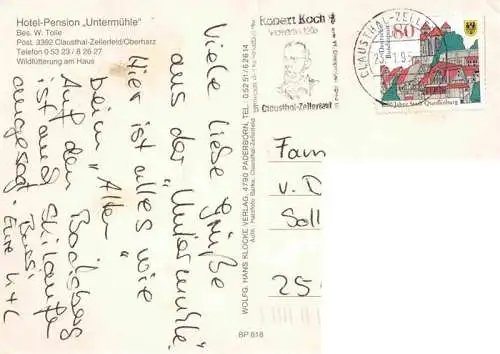 Hotel-Pension „Untermühle"
Bes. W. Tolle
Post. 3392 Clausthal-Zellerfeld/Oberharz
Telefon 0 53 23 / 8 26 27
Wildfütterung am Haus
Viele liebe Grüße
aus der "Untermühle".
Hier ist alles wie
beim "Alten"
Auf dem Bocksberg
ist aus Skilaufen
angesagt.
Bussi
Eure
WOLFG. HANS KLOCKE VERLAG, 4790 PADERBORN, TEL. 0 52 51 / 6 26 14
BP 818
Robert Koch
Clausthal-Zellerfeld
CLAUSTHAL-ZELLERFELD
80
Deutsche
Bundespost
Jahre Stadt Quedlinburg
Fam
v. D
Soll
25